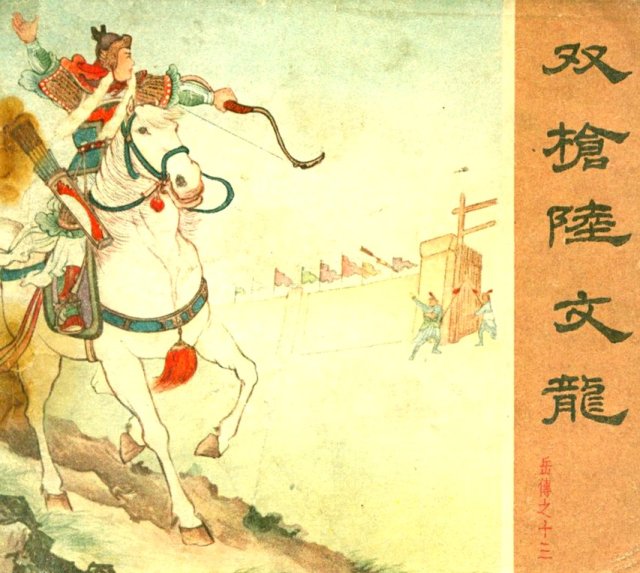 双槍陸文龍
岳傳之十三